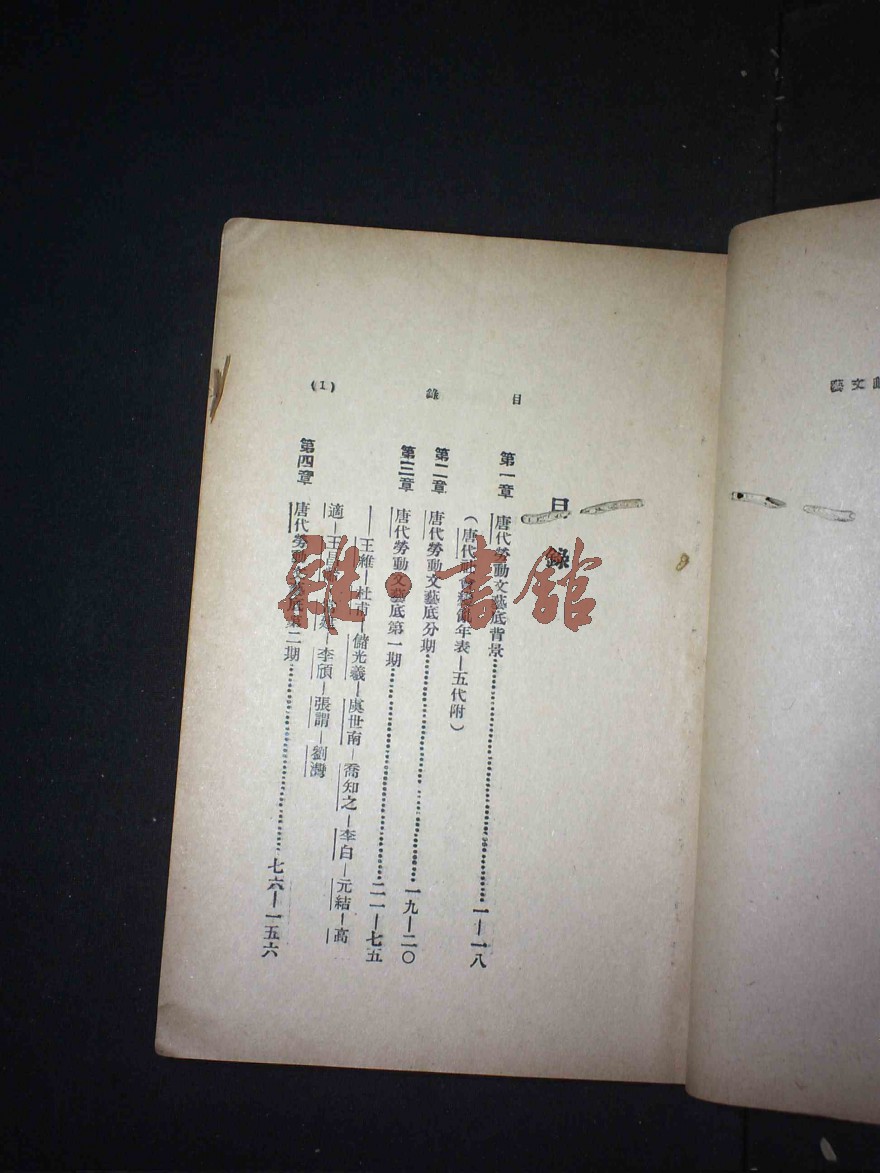 目 錄 (1)
目 錄
第一章 唐代勞動文藝底背景 一—一八
(唐代社會 亂年表—五代附)
第二章 唐代勞動文藝底分期 一九—二〇
第三章 唐代勞動文藝底第一期 二一—七五
——王維—杜甫—儲光羲—虞世南—喬知之—李白—元結—高
適—王昌 李頎—張謂—劉灣
第四章 唐代勞動文藝底第二期 七六—一五六
文藝
雜·書館